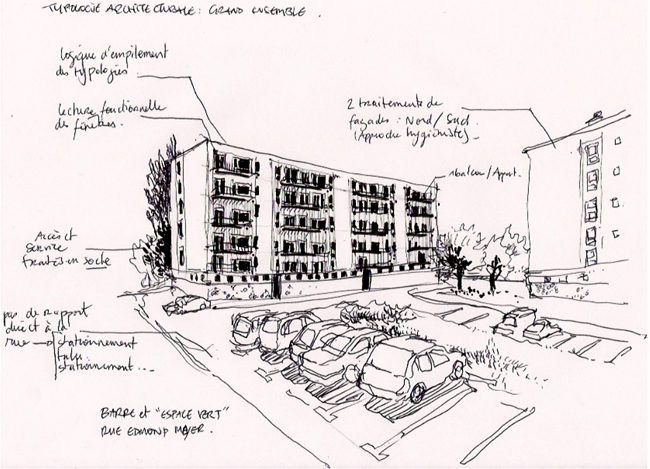 TYPOLOGIE ARCHITECTURALE : GRAND ENSEMBLE.
logique d'empilement
des typologies
lecture fonctionnelle
des fenêtres.
2 traitements de
façades : Nord / Sud.
(Approche hygiéniste)
1 balcon / Appart.
Accès et
service
traités en socle
pas de rapport
direct à la
rue → stationnement
talu
stationnement...
BARRE et "ESPACE VERT"
RUE EDMOND MAYER.